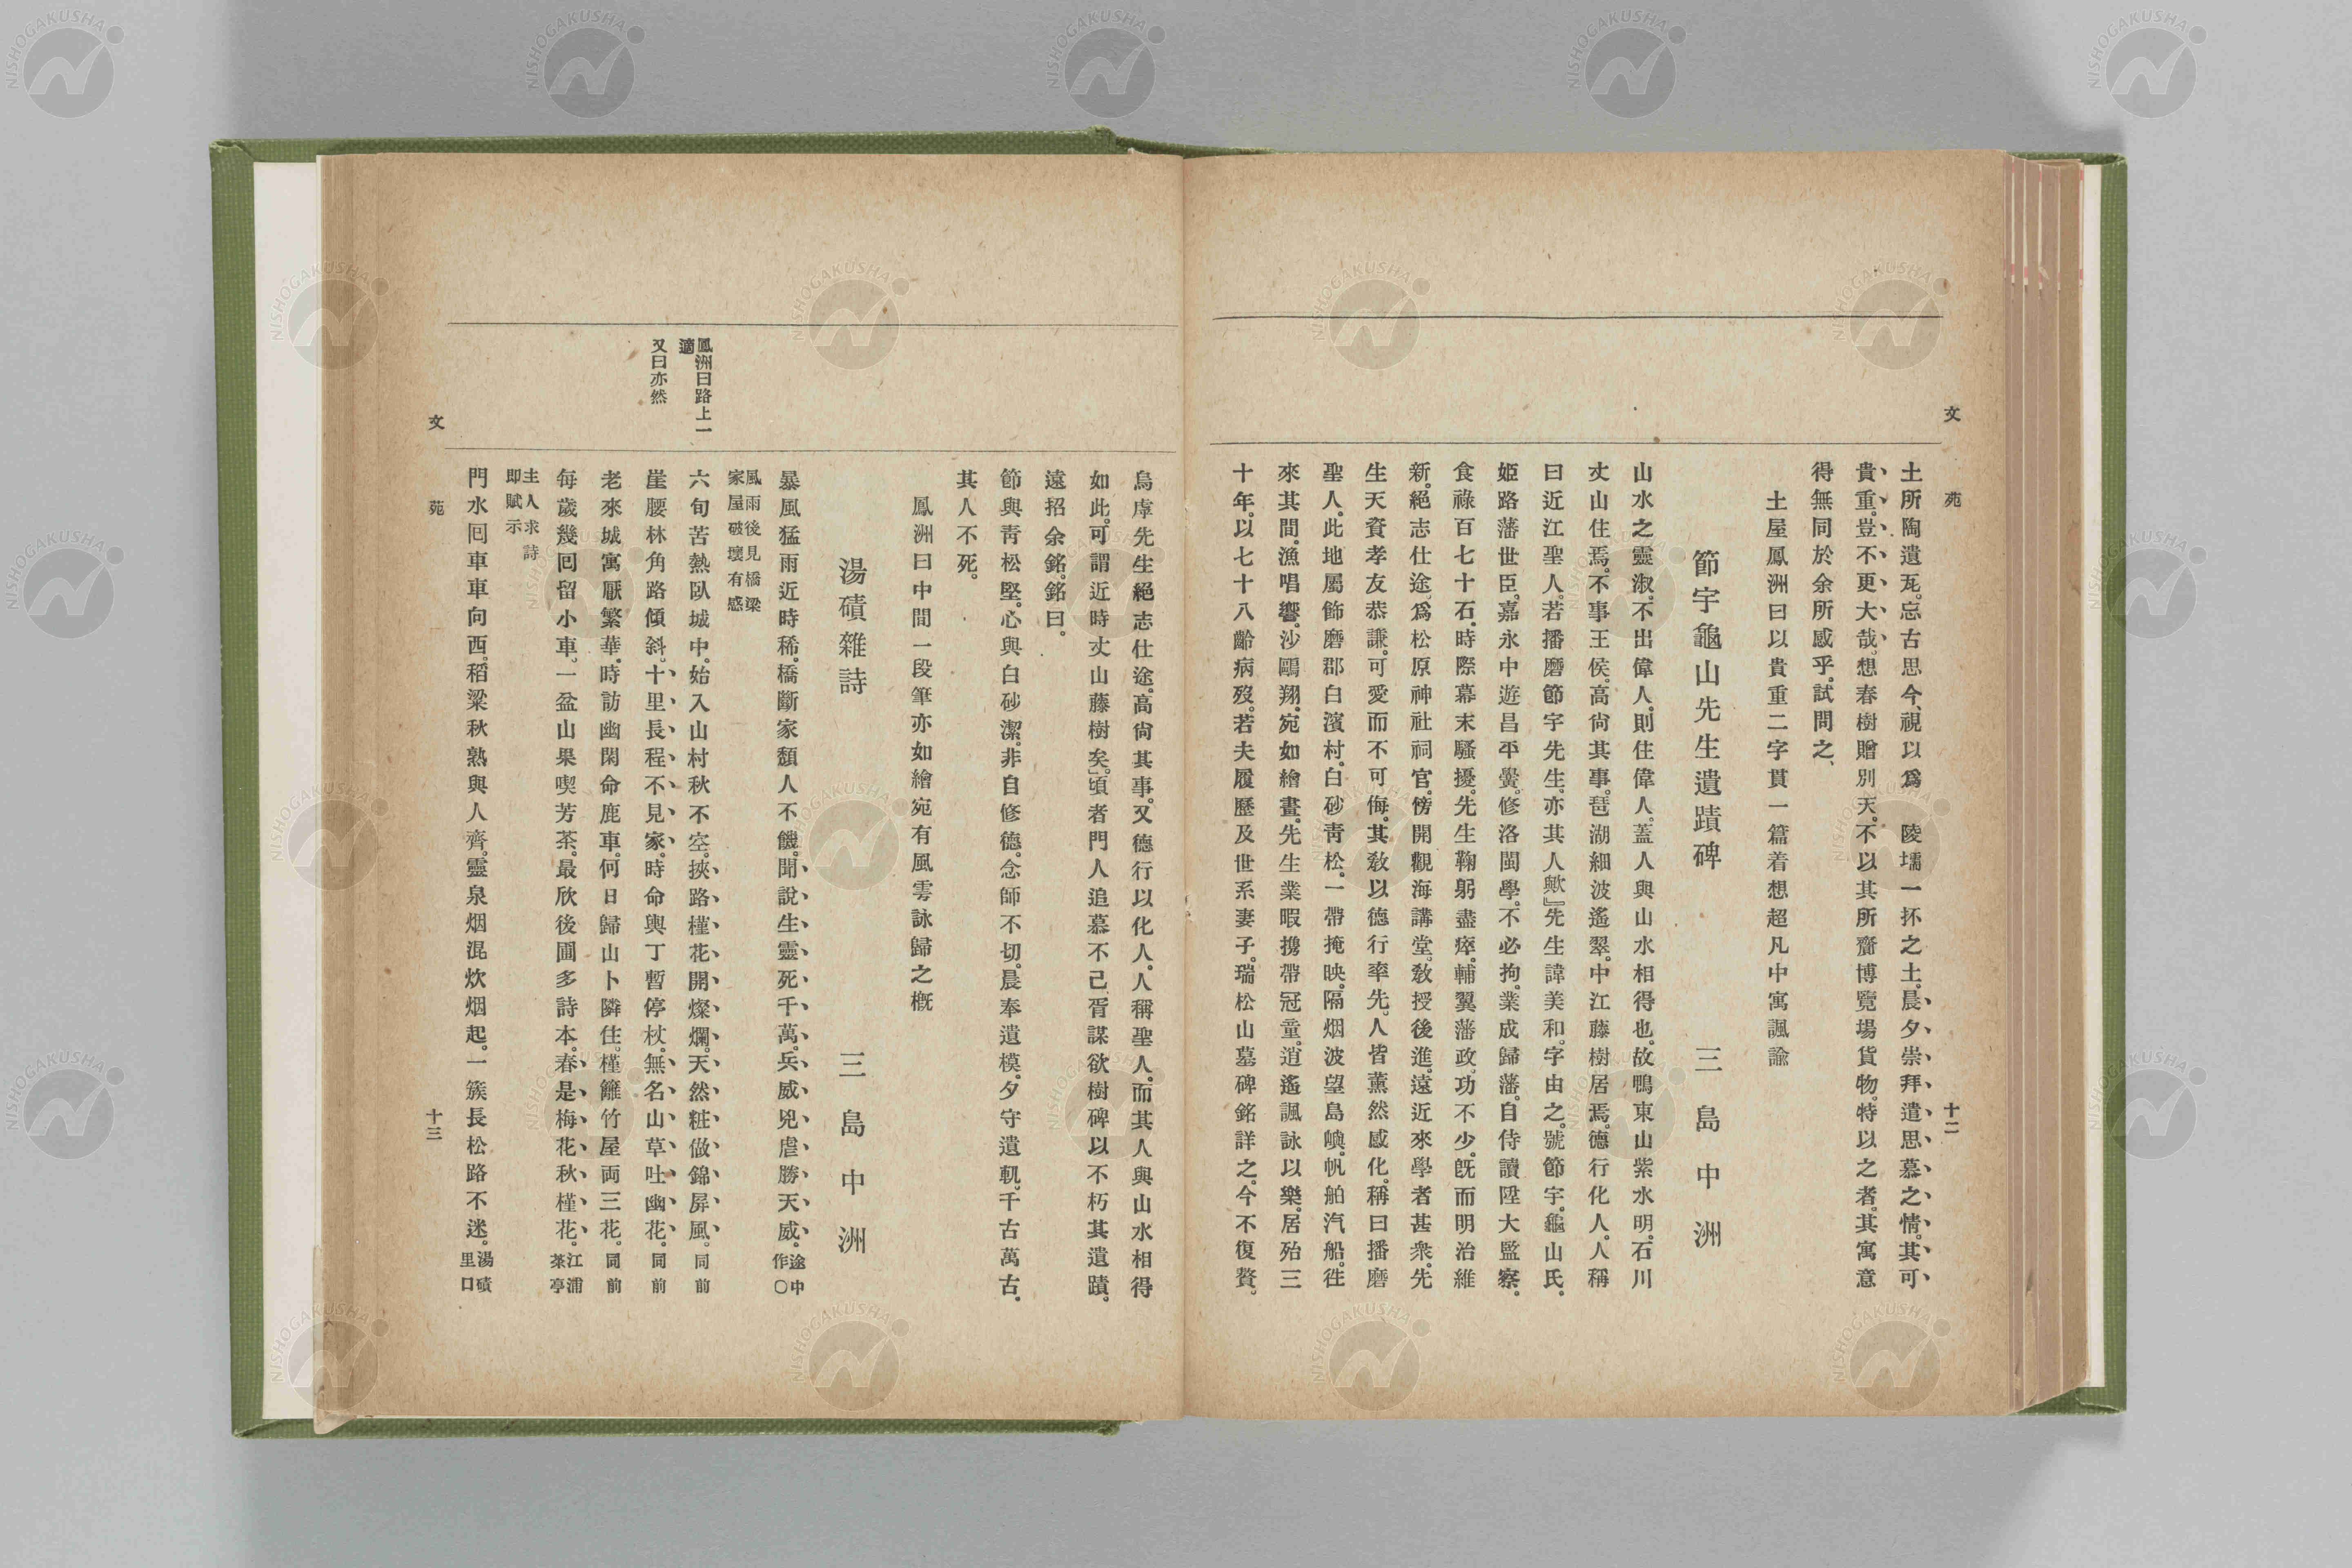 文　苑　十二
土所陶遺瓦。忘古思今、視以爲　陵壖一抔之土。晨夕崇拜遣思慕之情。其可
貴重。豈不更大哉。想春樹贈別天。不以其所齎博覽場貨物。特以之者。其寓意
得無同於余所感乎。試問之、
土屋鳳洲曰以貴重二字貫一篇着想超凡中寓諷諭
節宇龜山先生遺蹟碑　三島中洲
山水之靈淑。不出偉人。則住偉人。蓋人與山水相得也。故鴨東山紫水明。石川
丈山住焉。不事王侯。高尙其事。琶湖細波遙翠。中江藤樹居焉。德行化人。人稱
曰近江聖人。若播磨節宇先生。亦其人歟』先生諱美和。字由之。號節宇。龜山氏。
姬路藩世臣。嘉永中遊昌平黌。修洛閩學。不必拘。業成歸藩。自侍讀陞大監察。
食祿百七十石。時際幕末騷擾。先生鞠躬盡瘁。輔翼藩政。功不少。旣而明治維
新。絕志仕途。爲松原神社祠官。傍開觀海講堂。敎授後進。遠近來學者甚衆。先
生天資孝友恭謙。可愛而不可侮。其敎以德行率先。人皆薰然感化。稱曰播磨
聖人。此地屬飾磨郡白濱村。白砂靑松。一帶掩映。隔烟波望島嶼。帆舶汽船。徃
來其間。漁唱響。沙鷗翔。宛如繪畫。先生業暇携帶冠童。逍遙諷詠以樂。居殆三
十年。以七十八齡病歿。若夫履歷及世系妻子。瑞松山墓碑銘詳之。今不復贅。
鳥虖先生絕志仕途。高尙其事。又德行以化人。人稱聖人。而其人與山水相得
如此。可謂近時丈山藤樹矣。』頃者門人追慕不已胥謀欲樹碑以不朽其遺蹟。
遠招余銘。銘曰。
節與靑松堅。心與白砂潔。非自修德。念師不切。晨奉遺模。夕守遺軌。千古萬古。
其人不死。
鳳洲曰中間一段筆亦如繪宛有風雩詠歸之槪
湯磧雜詩　三島中洲
暴風猛雨近時稀。橋斷家頽人不饑。聞說生靈死千萬。兵威兇虐勝天威。途中作〇
風雨後見橋梁家屋破壞有感
鳳洲曰路上一適
六旬苦熱臥城中。始入山村秋不空。挾路槿花開燦爛。天然粧倣錦屏風。同前
又曰亦然
崖腰林角路傾斜。十里長程不見家。時命輿丁暫停杖。無名山草吐幽花。同前
老來城寓厭繁華。時訪幽閑命鹿車。何日歸山卜隣住。槿籬竹屋両三花。同前
每歲幾回留小車。一盆山果喫芳茶。最欣後圃多詩本。春是梅花秋槿花。江浦茶亭
主人求詩即賦示
門水囘車車向西。稻梁秋熟與人齊。靈泉烟混炊烟起。一簇長松路不迷。湯磧里口
文　苑　十三